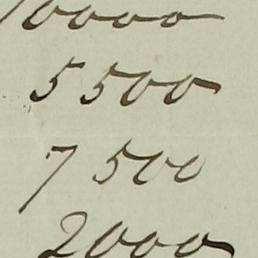 10000
5500
7500
2000